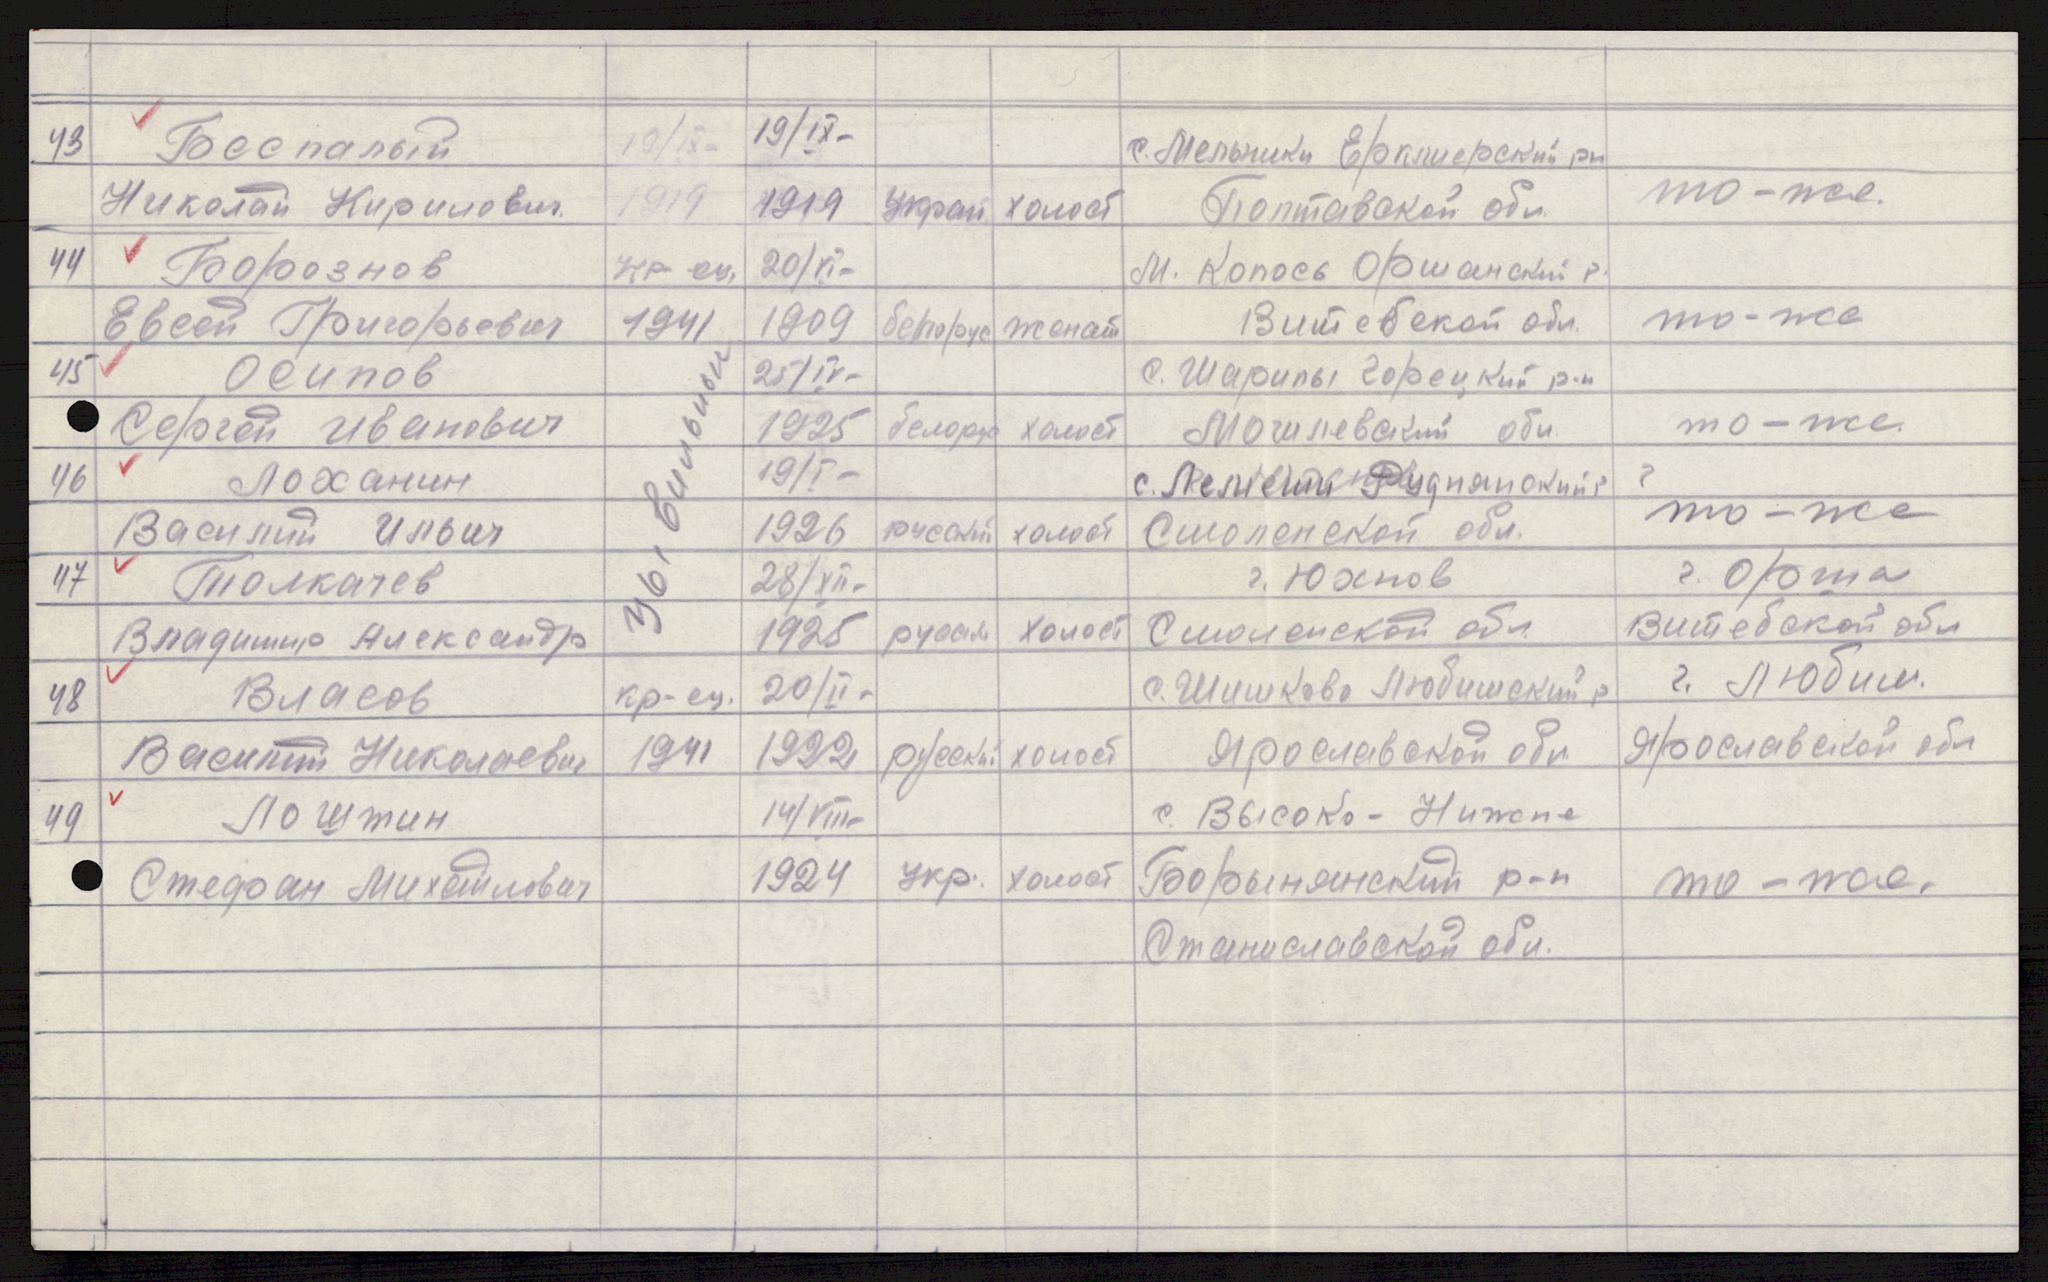 43 Беспалый 19/IX- 19/IX- с. Мельники Еркли­ерский рн
Николай Кирилович. 1919 1919 Украи. холост Полтавской обл. то-же.
44 Борознов кр-ец. 20/VI- М. Копось Оршанский р.
Евсей Григорьевич 1941 1909 белорус женат Витебской обл. то-же
45 Осипов 25/IV- с. Шарипы Горецкий р-н
Сергей Иванович 1925 белорус холост Могилевский обл. то-же.
46 Лоханин 19/I- с. Руднянский г
Василий Ильич 1926 русский холост Смоленской обл. то-же
47 Толкачев 28/XII- г. Юхнов г. Орша
Владимир Александр 1925 русск холост Смоленской обл. Витебской обл
48 Власов кр-ец. 20/II- с. Шишково Любимский р г. Любим.
Василий Николаевич 1941 1922 русский холост Ярославской обл. Ярославской обл
49 Лошжин 14/VIII- с. Высоко-Нижне
Стефан Михайлович 1924 Укр. холост Борынянский р-н то-же.
Станиславской обл.
Цывильный